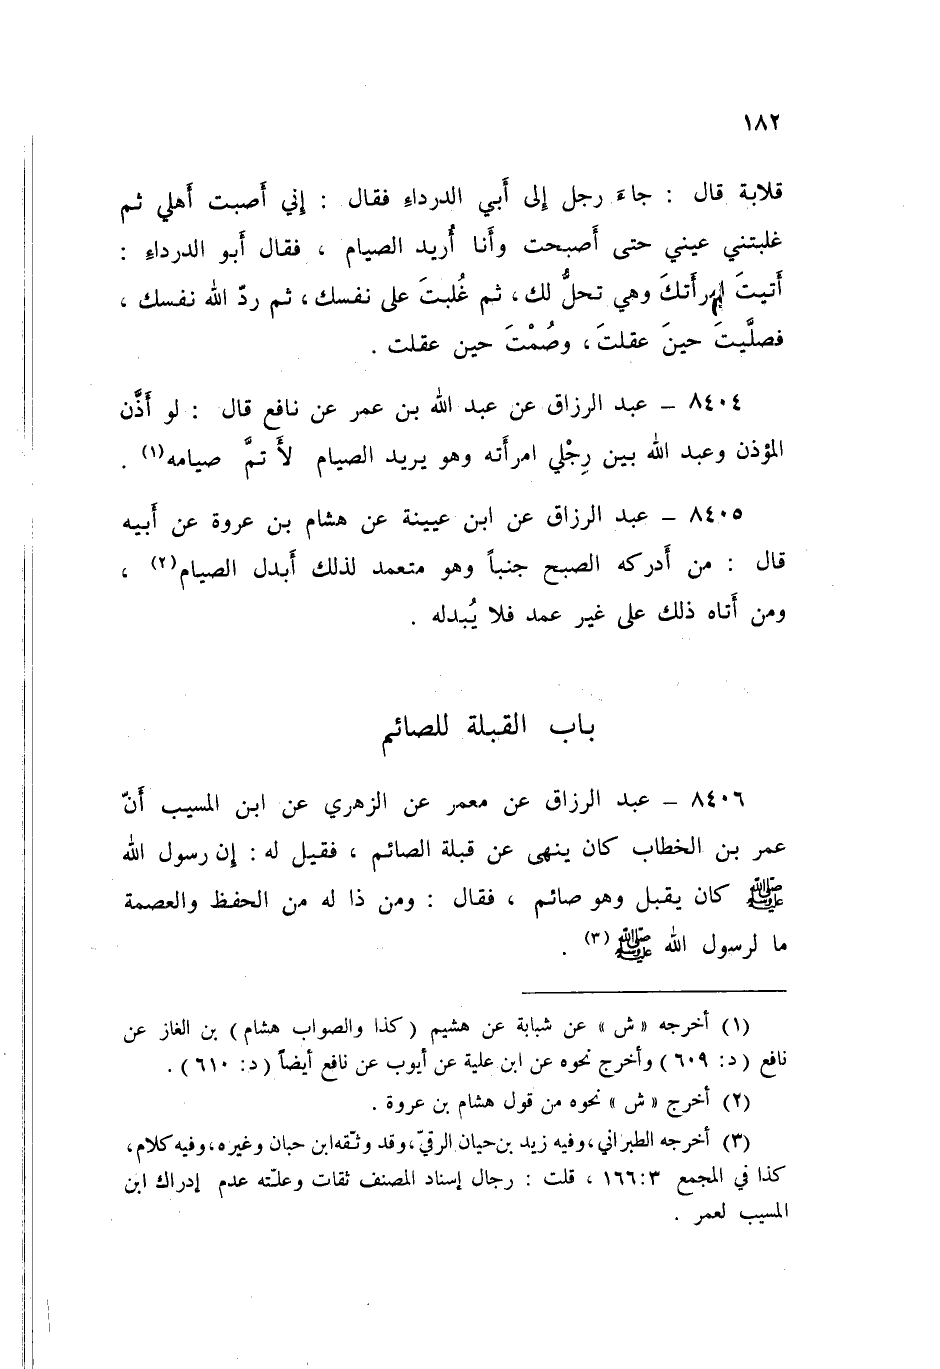 ١٨٢
قلابة قال : جاءَ رجل إلى أَبي الدرداءِ فقال : إني أَصبت أَهلي ثم
غلبتني عيني حتى أَصبحت وأَنا أُريد الصيام ، فقال أَبو الدرداءِ :
أَتيتَ امرأَتكَ وهي تحلُّ لك، ثم غُلبتَ على نفسك، ثم ردّ الله نفسك ،
فصلَّيتَ حينَ عقلتَ، وصُمْتَ حين عقلت .
٨٤٠٤ – عبد الرزاق عن عبد الله بن عمر عن نافع قال : لو أَذَّن
المؤذن وعبد الله بين رِجْلي امرأَته وهو يريد الصيام لأَ تمَّ صيامه(١) .
٨٤٠٥ – عبد الرزاق عن ابن عيينة عن هشام بن عروة عن أَبيه
قال : من أَدركه الصبح جنباً وهو متعمد لذلك أَبدل الصيام(٢) ،
ومن أَتاه ذلك على غير عمد فلا يُبدله .
باب القبلة للصائم
٨٤٠٦ – عبد الرزاق عن معمر عن الزهري عن ابن المسيب أَنّ
عمر بن الخطاب كان ينهى عن قبلة الصائم ، فقيل له : إن رسول الله
ﷺ كان يقبل وهو صائم ، فقال : ومن ذا له من الحفظ والعصمة
ما لرسول الله ﷺ(٣) .
(١) أخرجه «ش» عن شبابة عن هشيم (كذا والصواب هشام) بن الغاز عن
نافع (د: ٦٠٩) وأخرج نحوه عن ابن علية عن أيوب عن نافع أيضاً (د: ٦١٠) .
(٢) أخرج «ش» نحوه من قول هشام بن عروة .
(٣) أخرجه الطبراني، وفيه زيد بن حيان الرقيّ، وقد وثّقه ابن حبان وغيره، وفيه كلام،
كذا في المجمع ١٦٦:٣ ، قلت : رجال إسناد المصنف ثقات وعلّته عدم إدراك ابن
المسيب لعمر .